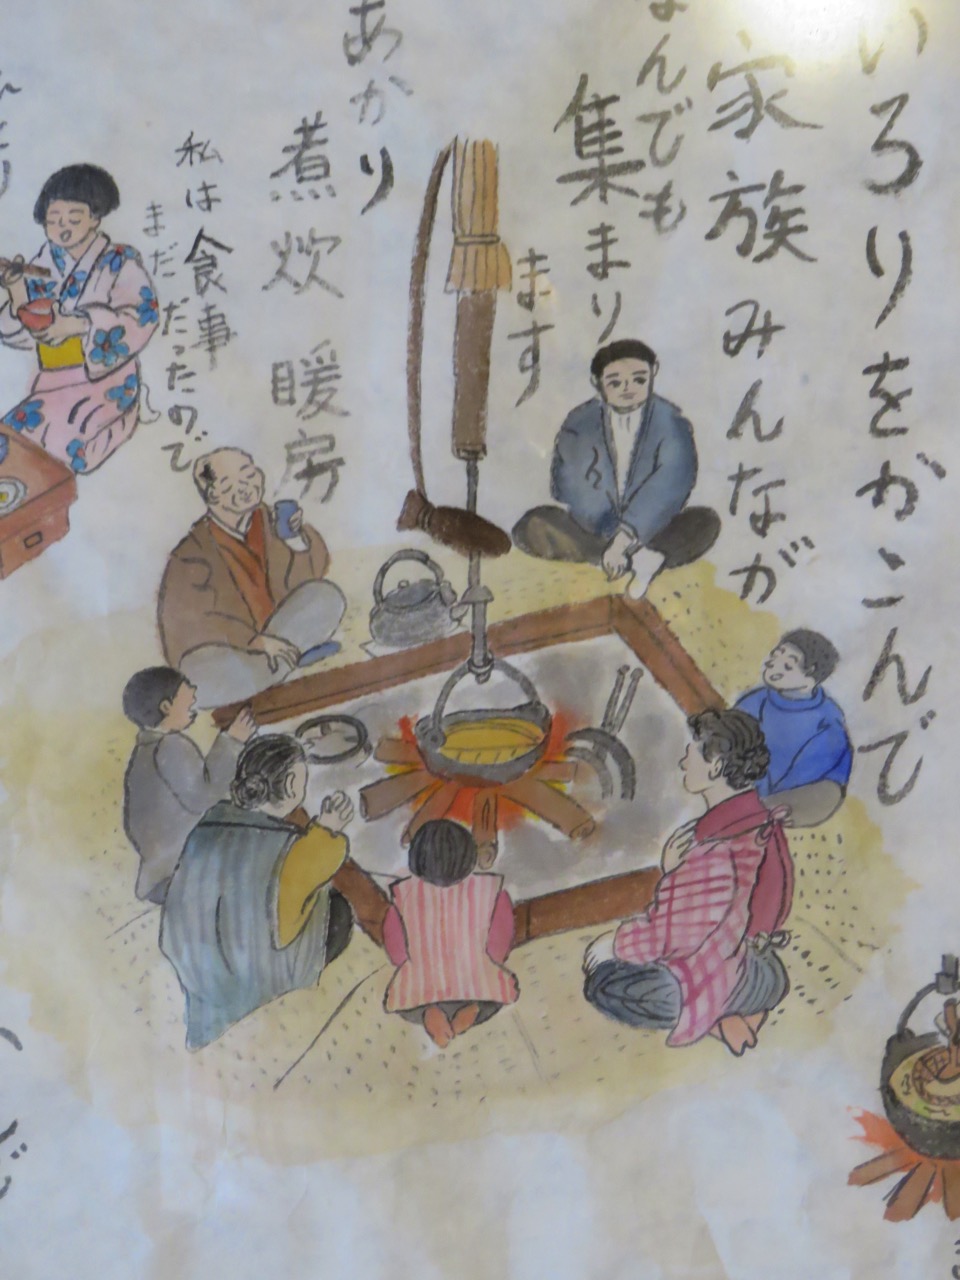 いろりをかこんで
家族みんなが
なんでも
集まり
ます
あかり
煮炊 暖房
私は食事
まだだったので